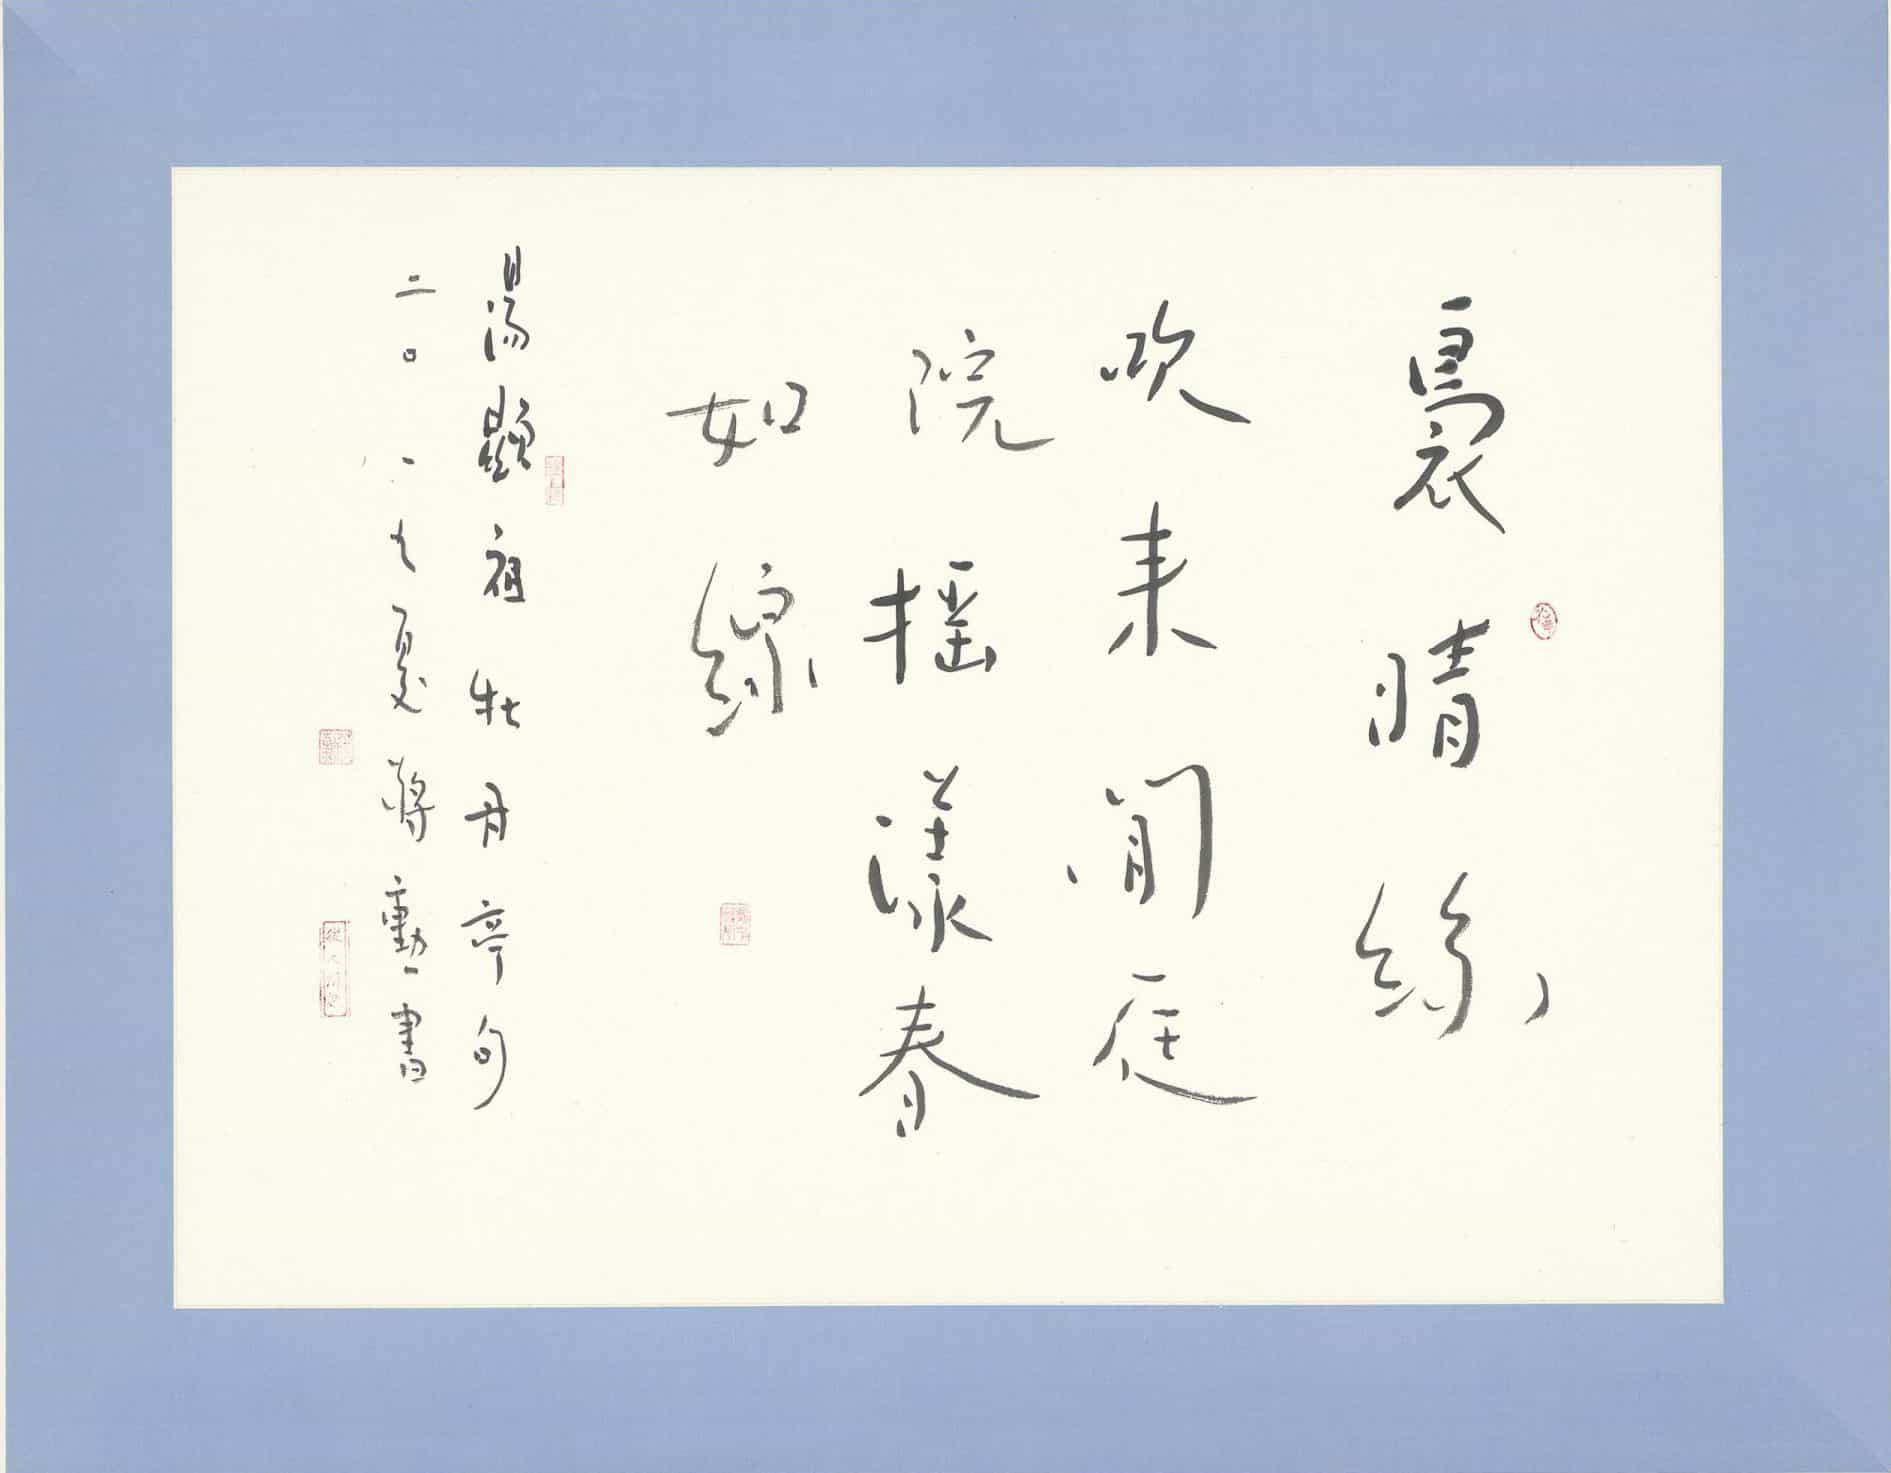 裊晴絲
吹来閒庭
院搖漾春
如線
湯顯祖牡丹亭句
二〇一九夏蔣勳書